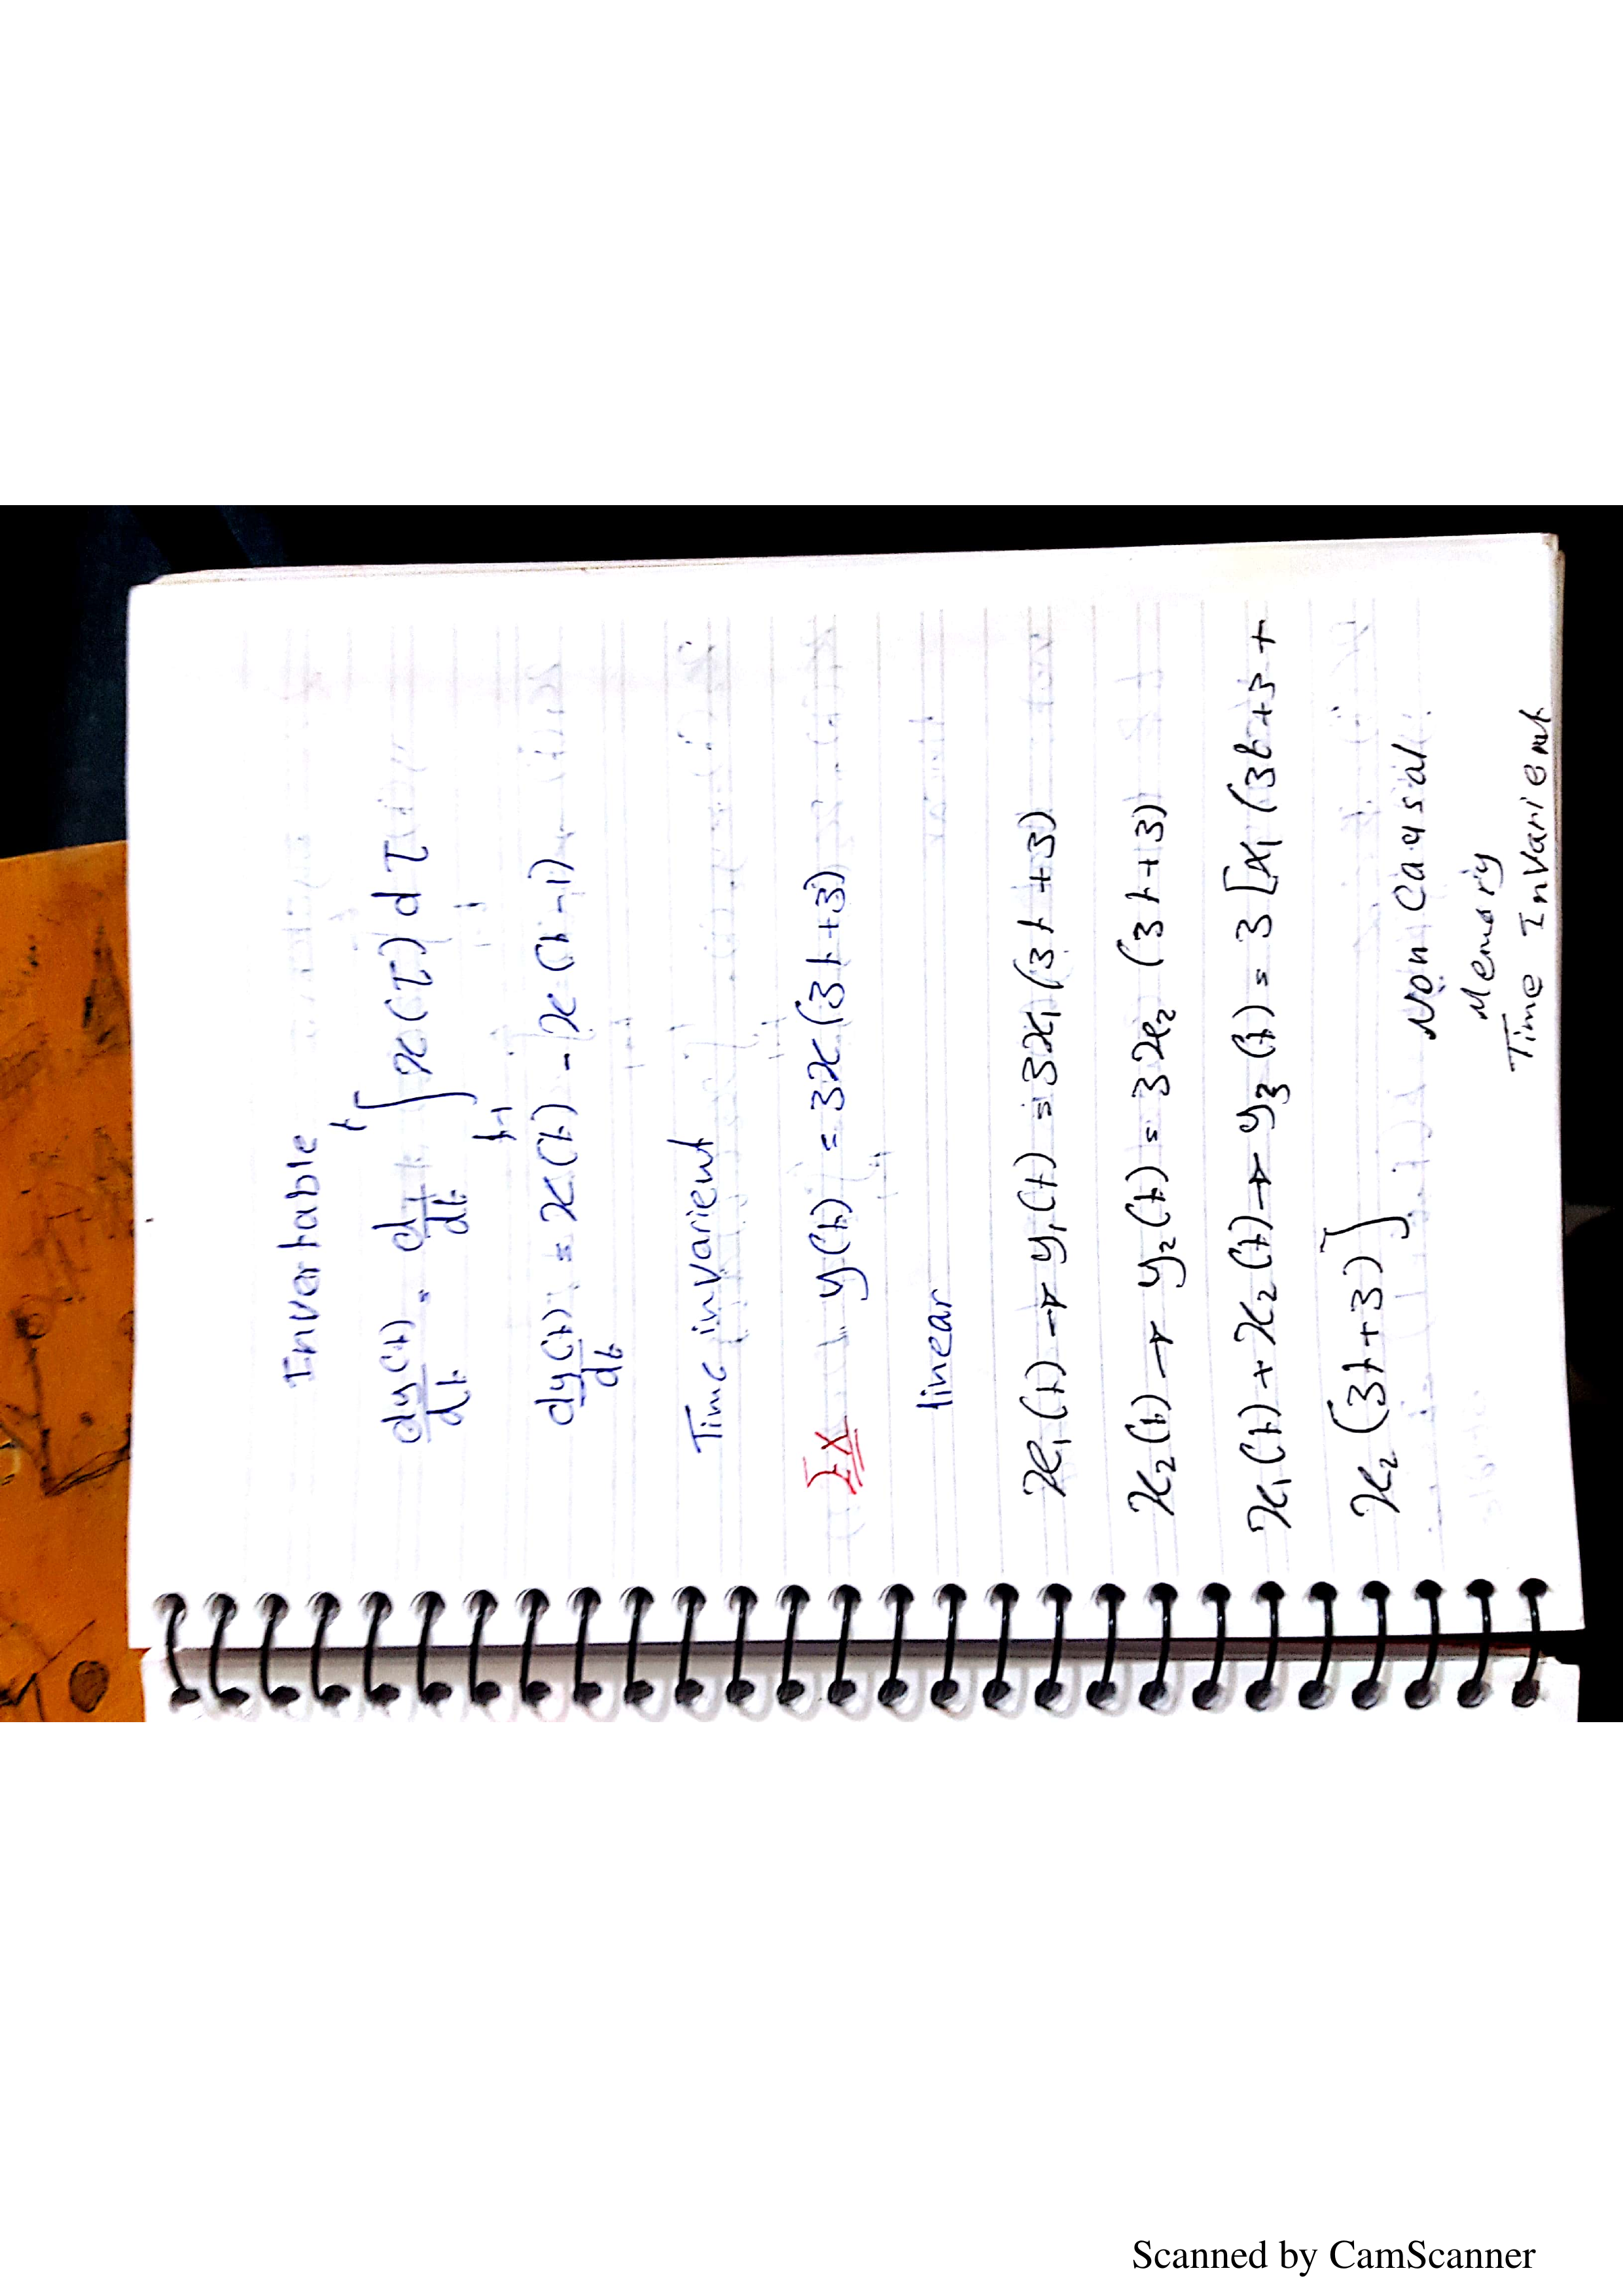 Invertable
dy(t)/dt = d/dt ∫_{t-1}^{t} x(τ) dτ
dy(t)/dt = x(t) - x(t-1)
Time invarient
Ex y(t) = 3x(3t+3)
linear
x₁(t) → y₁(t) = 3x₁(3t+3)
x₂(t) → y₂(t) = 3x₂(3t+3)
x₁(t) + x₂(t) → y₃(t) = 3[x₁(3t+3 +
x₂(3t+3)]
Non Causal
Memory
Time Invarient
Scanned by CamScanner